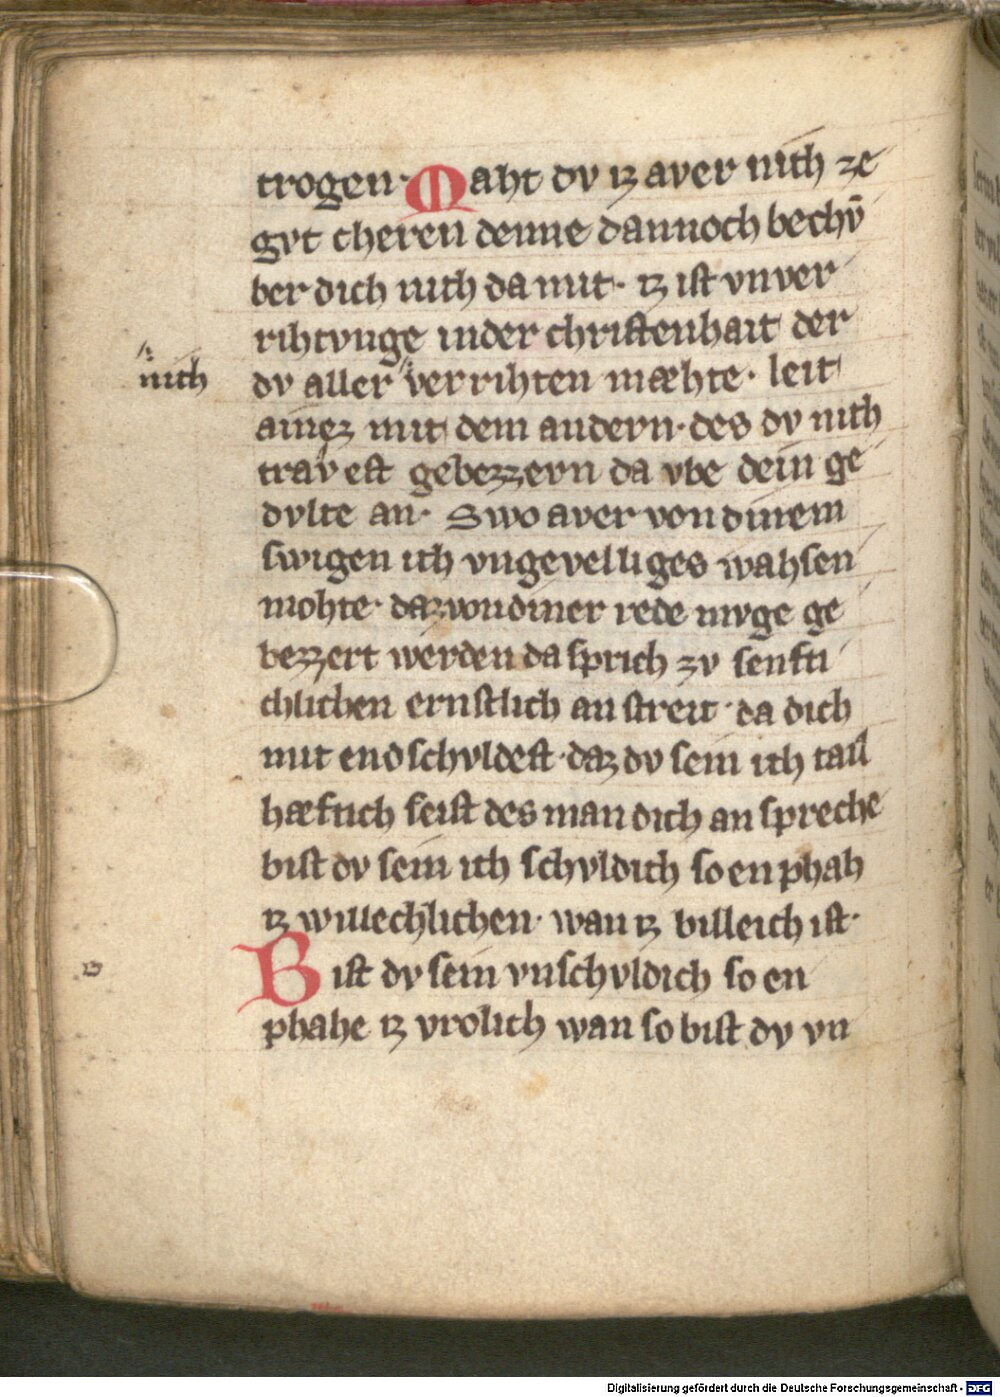 trogen· Maht dv iz aver nith ze
gvt cheren denne dannoch bechv̄
ber dich nith da mit· iz ist vnver
rihtvnge inder christenhait der
nith
dv aller verrihten mæhte· leit
ainez mit dem andern· des dv nith
travest gebezzern da vbe dein ge
dvlte an· Swo aver von dinem
swigen ith vngevelliges wahsen
mohte· daz von diner rede mvge ge
bezzert werden da sprich zv senfti
chlichen ernstlich an streit· da dich
mit endschvldest· daz dv sein ith tail
hæftich seist des man dich an spreche
bist dv sein ith schvldich so enphah
iz willechlichen· wan iz billeich ist·
Bist dv sein vnschvldich so en
phahe iz vrolich wan so bist dv vn
Digitalisierung gefördert durch die Deutsche Forschungsgemeinschaft - DFG